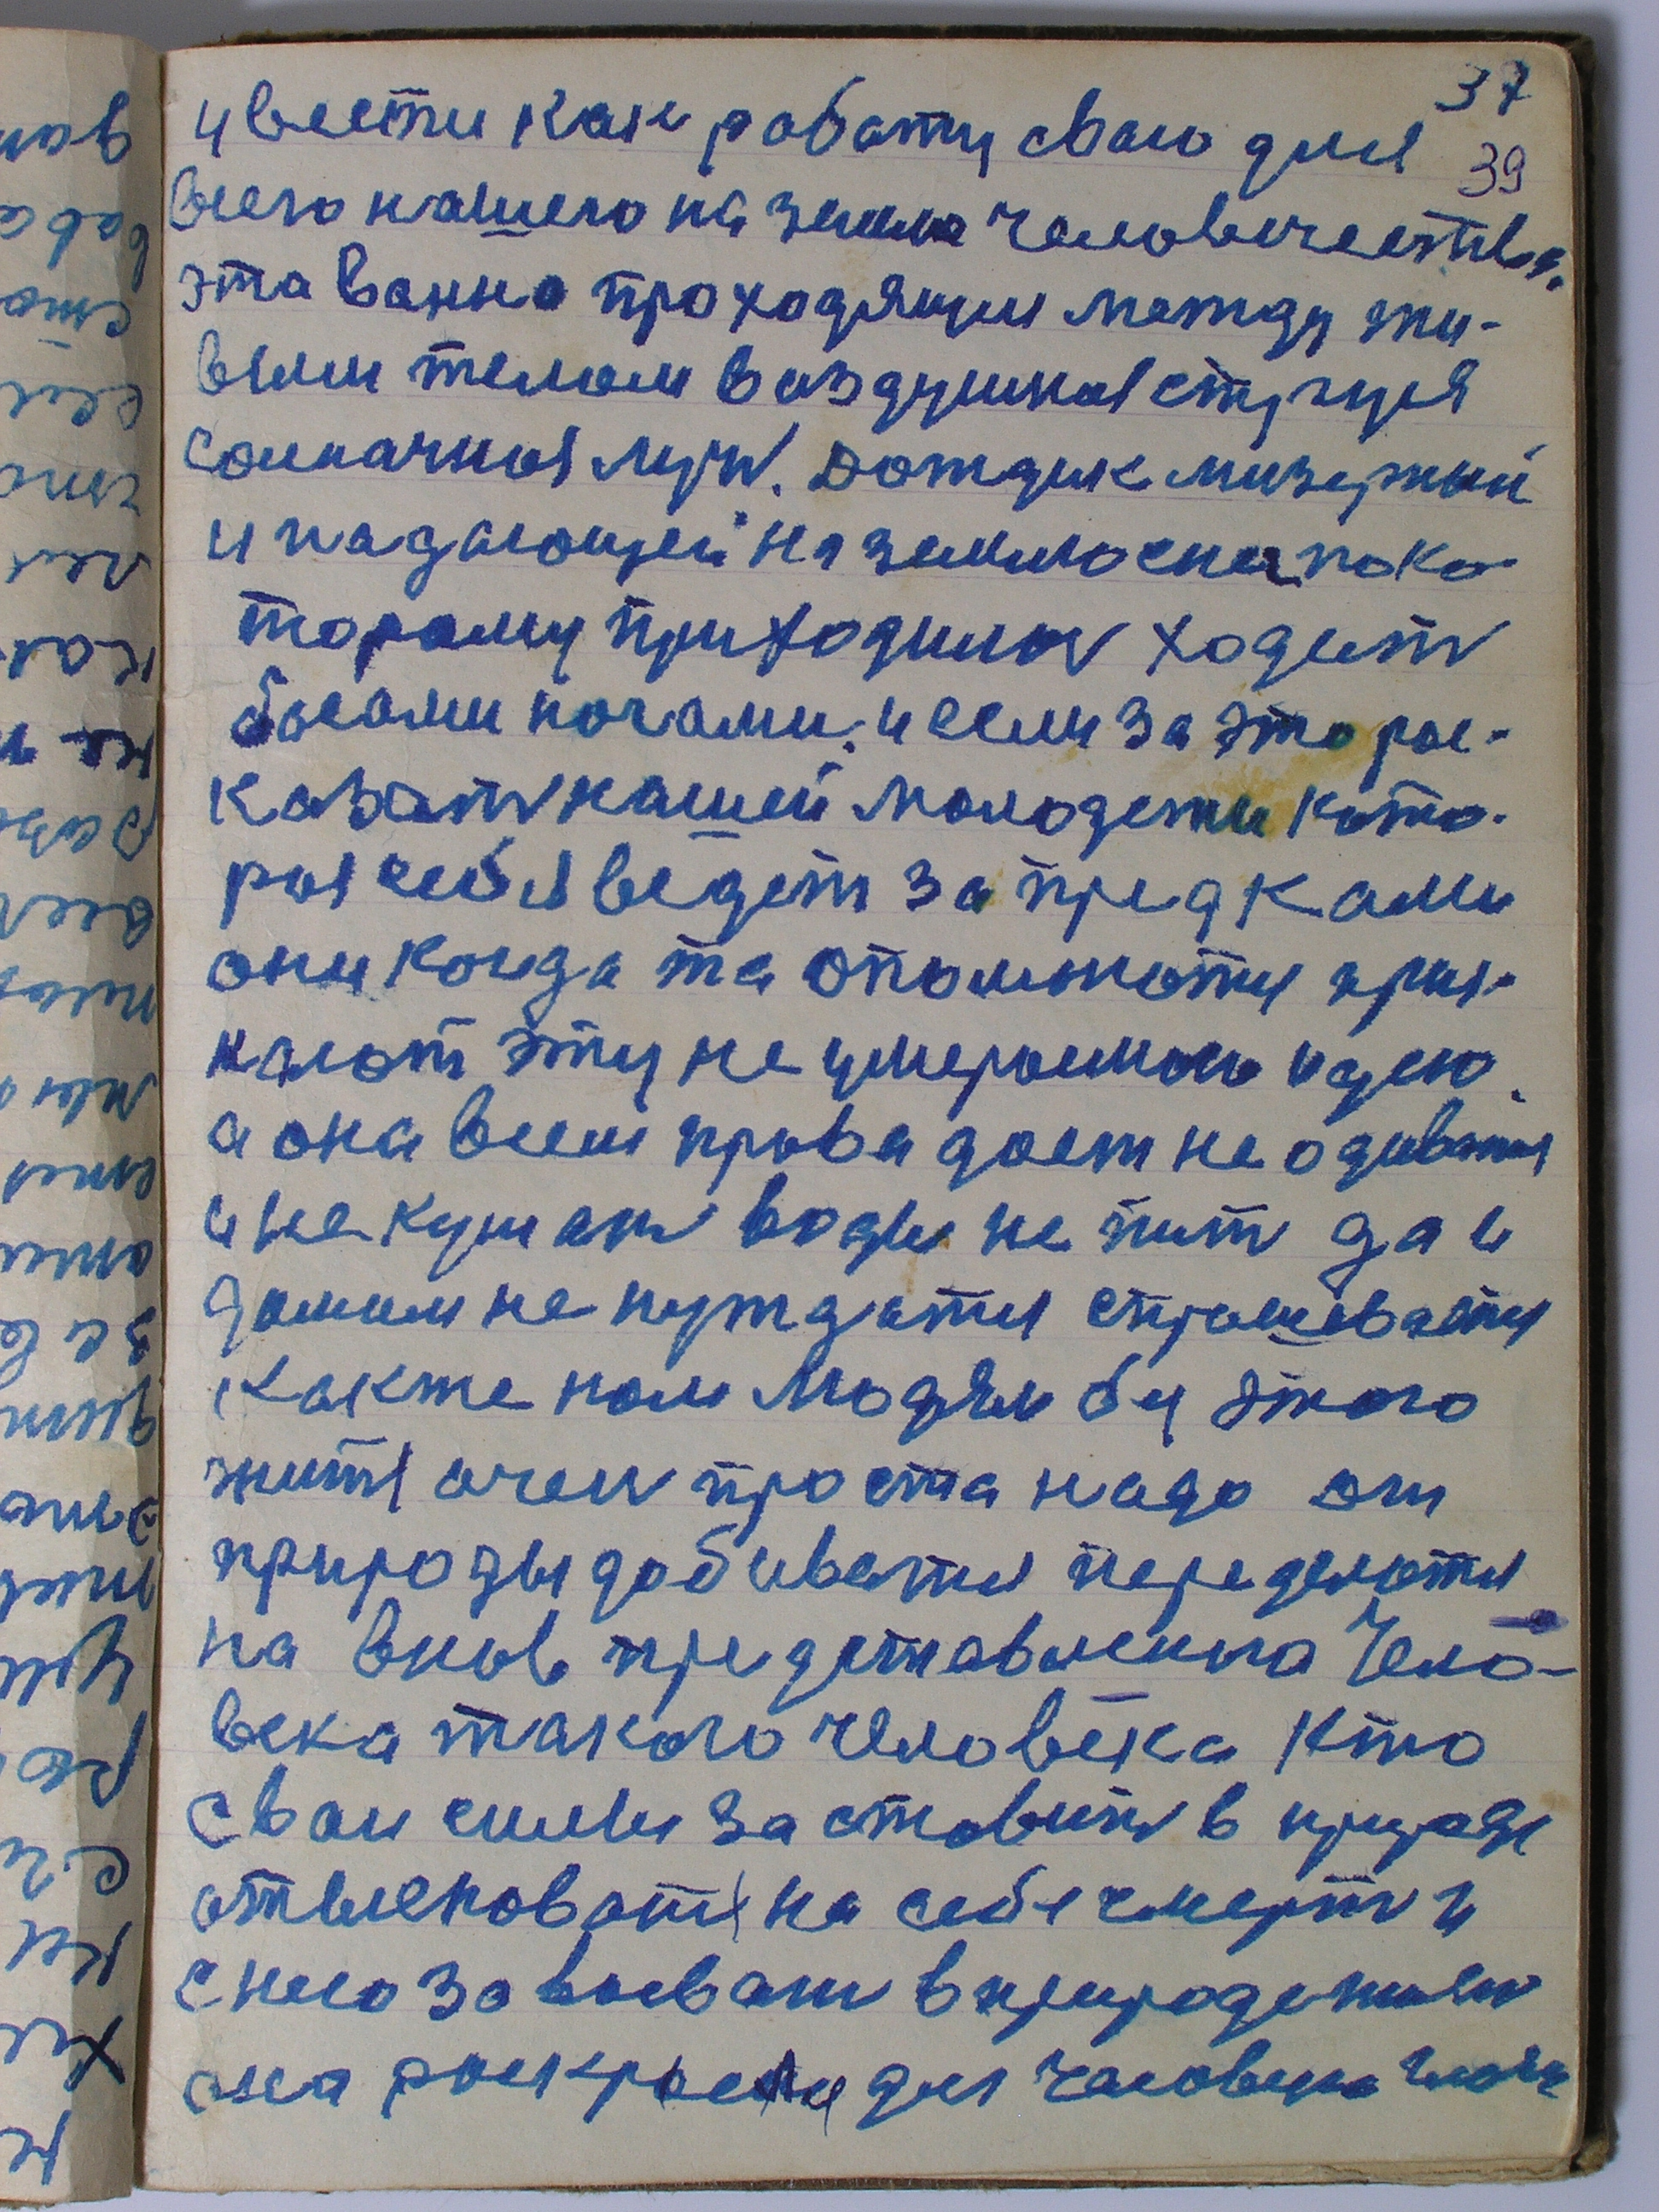 37
39
и вести как работу сваю для
всего нашего на земле человечества.
эта ванна проходящия между жи-
вым телом воздушная стручуя
солначная луч. Дождик мизержый
и падающей на землю снег по ко
торому приходилос ходит
босами ногами. и если за это рас-
казат нашей молодежи кото-
рая себя ведет за предками
они когда та опомнются при-
нают эту не умераемою идею
а она всем права дает не одиватся
и не кушат воды не пит да и
домом не нуждатся спрашивается
как же нам людям бу этого
жить очен проста надо от
природы добиватся переделатся
на внов представленого Чело-
века такого человека кто
сваи силы заставит в природе
на себе смерт и
с него завоеват в природе жизн
она роскрыла для человека глаза